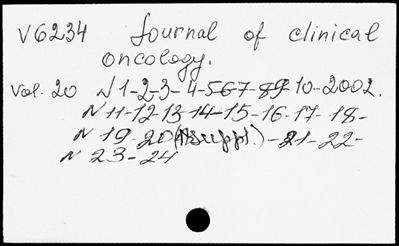 V6234 Journal of clinical
oncology.
Vol. 20 N 1-2-3-4-5-6-7-8-9-10-2002.
N 11-12-13-14-15-16-17-18-
N 19-20(+suppl.)-21-22-
N 23-24